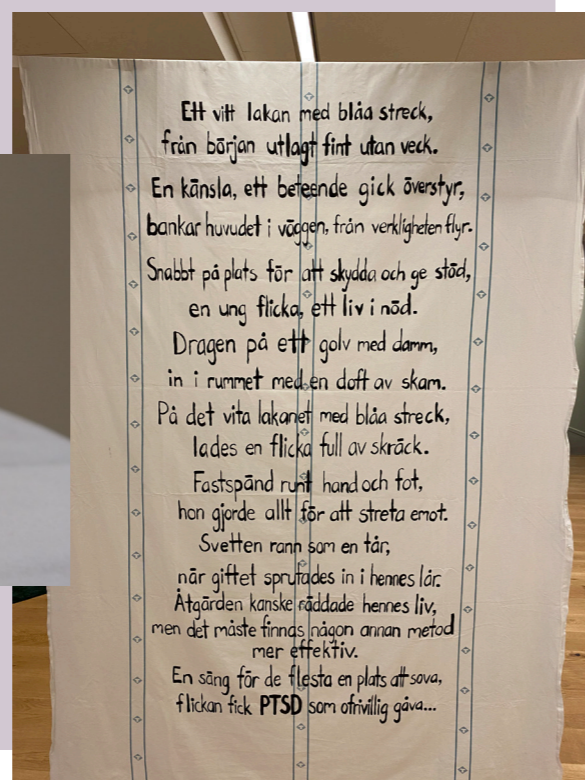 Ett vitt lakan med blåa streck,
från början utlagt fint utan veck.
En känsla, ett beteende gick överstyr,
bankar huvudet i väggen, från verkligheten flyr.
Snabbt på plats för att skydda och ge stöd,
en ung flicka, ett liv i nöd.
Dragen på ett golv med damm,
in i rummet med en doft av skam.
På det vita lakanet med blåa streck,
lades en flicka full av skräck.
Fastspänd runt hand och fot,
hon gjorde allt för att streta emot.
Svetten rann som en tår,
när giftet sprutades in i hennes lår.
Åtgärden kanske räddade hennes liv,
men det måste finnas någon annan metod
mer effektiv.
En säng för de flesta en plats att sova,
flickan fick PTSD som ofrivillig gåva...